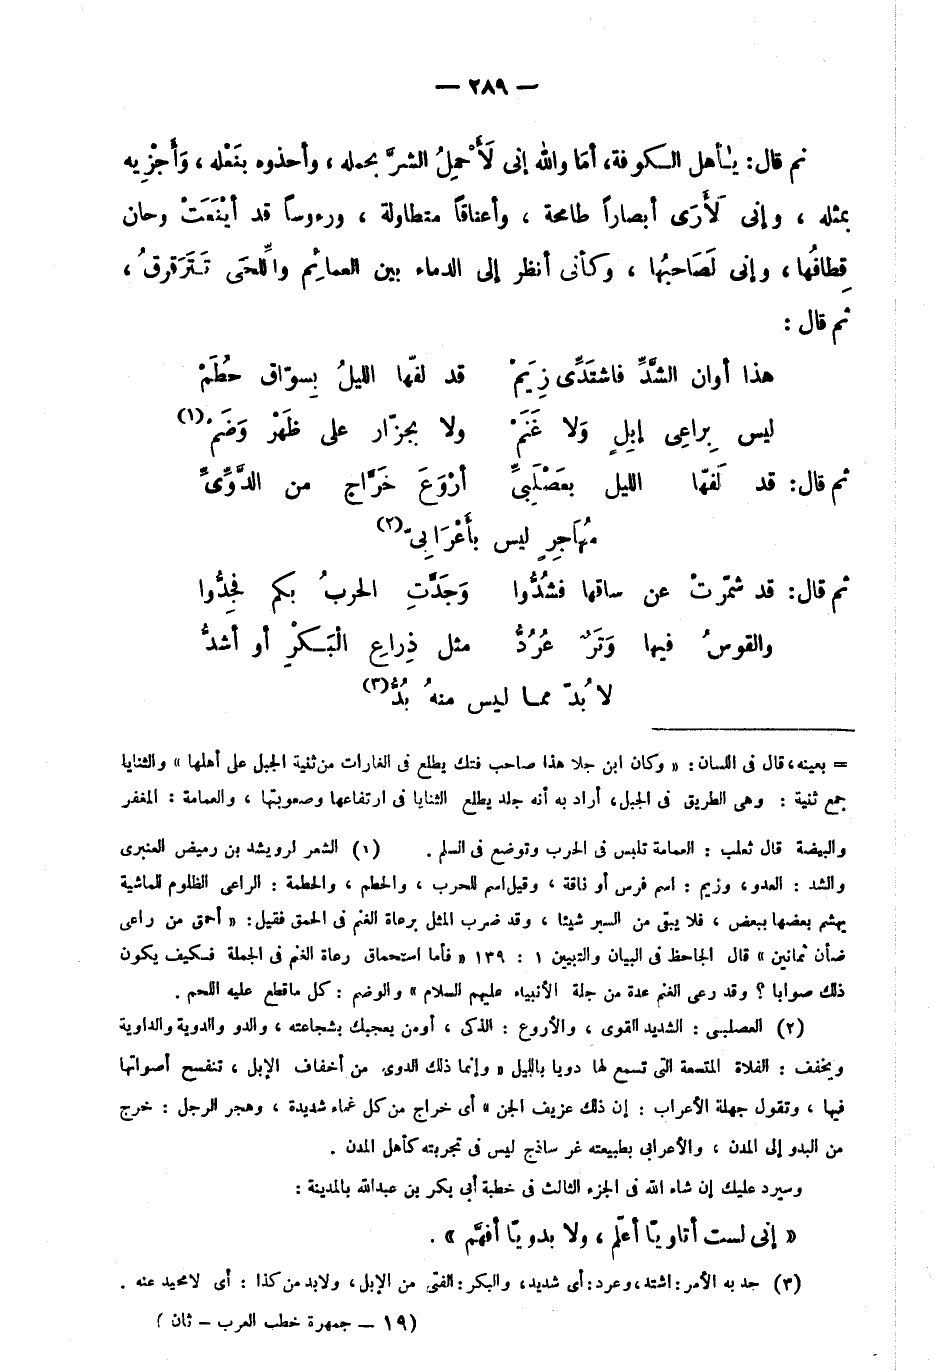 — ٢٨٩ —
ثم قال: يأهل الكوفة، أمَا والله إنى لَأَحْمِلُ الشرَّ بحمله ، وأحذوه بنَعْله ، وَأَجْزِيه
بمثله ، وإنى لَأَرَى أبصاراً طامحة ، وأعناقاً متطاولة ، ورءوساً قد أيْنَعَتْ وحان
قِطافُها ، وإنى لَصَاحبُها ، وكأنى أنظر إلى الدماء بين العمائِم واللِّحَى تَتَرَقرقُ ،
ثم قال :
هذا أوان الشَّدِّ فاشتَدِّى زِيَمْ قد لفّها الليلُ بِسوّاق حُطَمْ
ليس بِراعِى إبِلٍ وَلا غَنَمْ ولا بجزّار على ظَهْر وَضَمْ(١)
ثم قال: قد لَفّها الليل بعَصْلَبِىِّ أرْوَعَ خَرَّاج من الدَّوِّىِّ
مُهَاجِرٍ ليس بأَعْرَابِىّ(٢)
ثم قال: قد شمّرتْ عن ساقها فشُدُّوا وَجَدَّتِ الحربُ بكم فجِدُّوا
والقوسُ فيها وَتَرٌ عُرُدُّ مثل ذِراعِ الْبَكْرِ أو أشدُّ
لا بُدّ مما ليس منهُ بُدُّ(٣)
= بعينه، قال فى اللسان: « وكان ابن جلا هذا صاحب فتك يطلع فى الغارات من ثنية الجبل على أهلها » والثنايا
جمع ثنية : وهى الطريق فى الجبل، أراد به أنه جلد يطلع الثنايا فى ارتفاعها وصعوبتها ، والعمامة : المغفر
والبيضة قال ثعلب : العمامة تلبس فى الحرب وتوضع فى السلم . (١) الشعر لرويشد بن رميض العنبرى
والشد : العدو، وزيم : اسم فرس أو ناقة ، وقيل اسم للحرب ، والحطم ، والحطمة : الراعى الظلوم للماشية
يهشم بعضها ببعض ، فلا يبقى من السير شيئا ، وقد ضرب المثل برعاة الغنم فى الحمق فقيل: « أحمق من راعى
ضأن ثمانين » قال الجاحظ فى البيان والتبيين ١ : ١٣٩ « فأما استحماق رعاة الغنم فى الجملة فكيف يكون
ذلك صوابا ؟ وقد رعى الغنم عدة من جلة الأنبياء عليهم السلام » والوضم : كل ماقطع عليه اللحم .
(٢) العصلبى : الشديد القوى ، والأروع : الذكى ، أومن يعجبك بشجاعته ، والدو والدوية والداوية
ويخفف : الفلاة المتسعة التى تسمع لها دويا بالليل « وإنما ذلك الدوى من أخفاف الإبل ، تنفسح أصواتها
فيها ، وتقول جهلة الأعراب : إن ذلك عزيف الجن » أى خراج من كل غماء شديدة ، وهجر الرجل : خرج
من البدو إلى المدن ، والأعرابى بطبيعته غر ساذج ليس فى تجربته كأهل المدن .
وسيرد عليك إن شاء الله فى الجزء الثالث فى خطبة أبى بكر بن عبدالله بالمدينة :
« إنى لست أتاويًّا أعلَّم ، ولا بدويًّا أفهَّم » .
(٣) جد به الأمر: اشتد، وعرد: أى شديد، والبكر: الفتى من الإبل، ولابد من كذا : أى لامحيد عنه .
(١٩ — جمهرة خطب العرب — ثان )